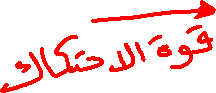 قوة الاحتكاك